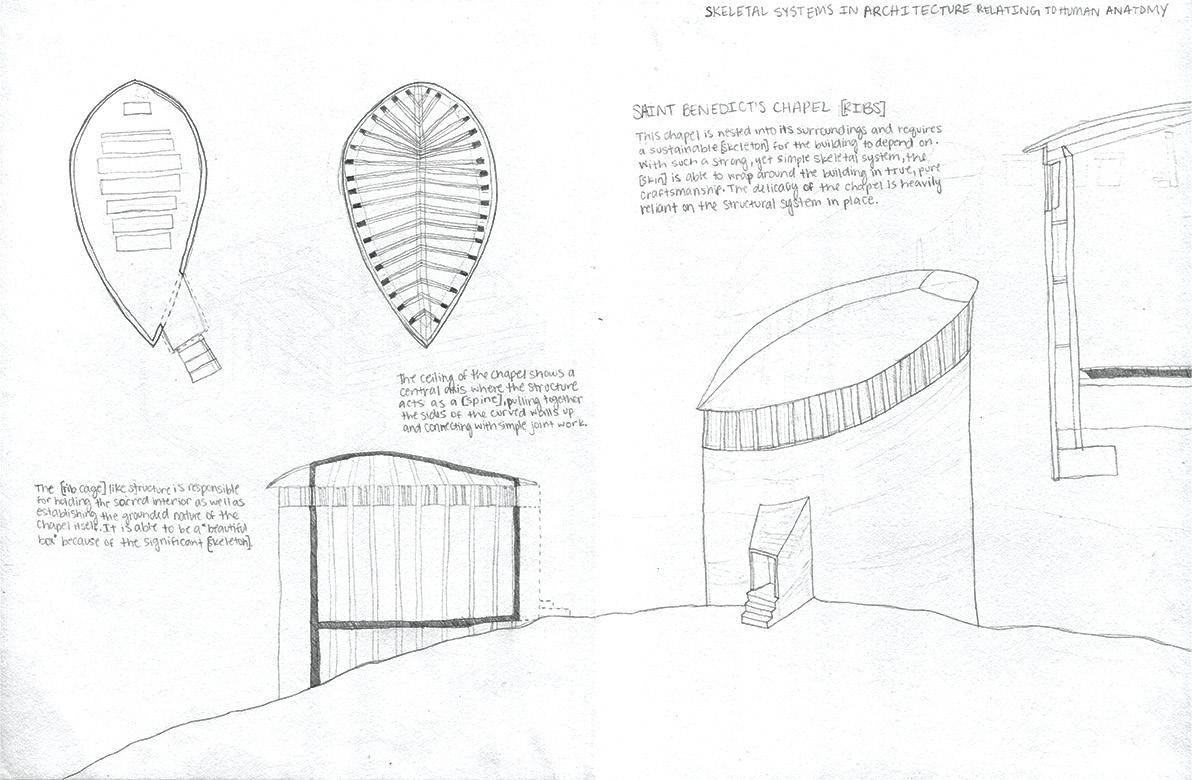 SKELETAL SYSTEMS IN ARCHITECTURE RELATING TO HUMAN ANATOMY
SAINT BENEDICT'S CHAPEL [RIBS]
This chapel is nested into its surroundings and requires
a sustainable [skeleton] for the building to depend on.
With such a strong, yet simple skeletal system, the
[skin] is able to wrap around the building in true, pure
craftsmanship. The delicacy of the chapel is heavily
reliant on the structural system in place.
The ceiling of the chapel shows a
central axis where the structure
acts as a [spine], pulling together
the sides of the curved walls up
and connecting with simple joint work.
The [rib cage] like structure is responsible
for holding the sacred interior as well as
establishing the grounded nature of the
chapel itself. It is able to be a "beautiful
box" because of the significant [skeleton].